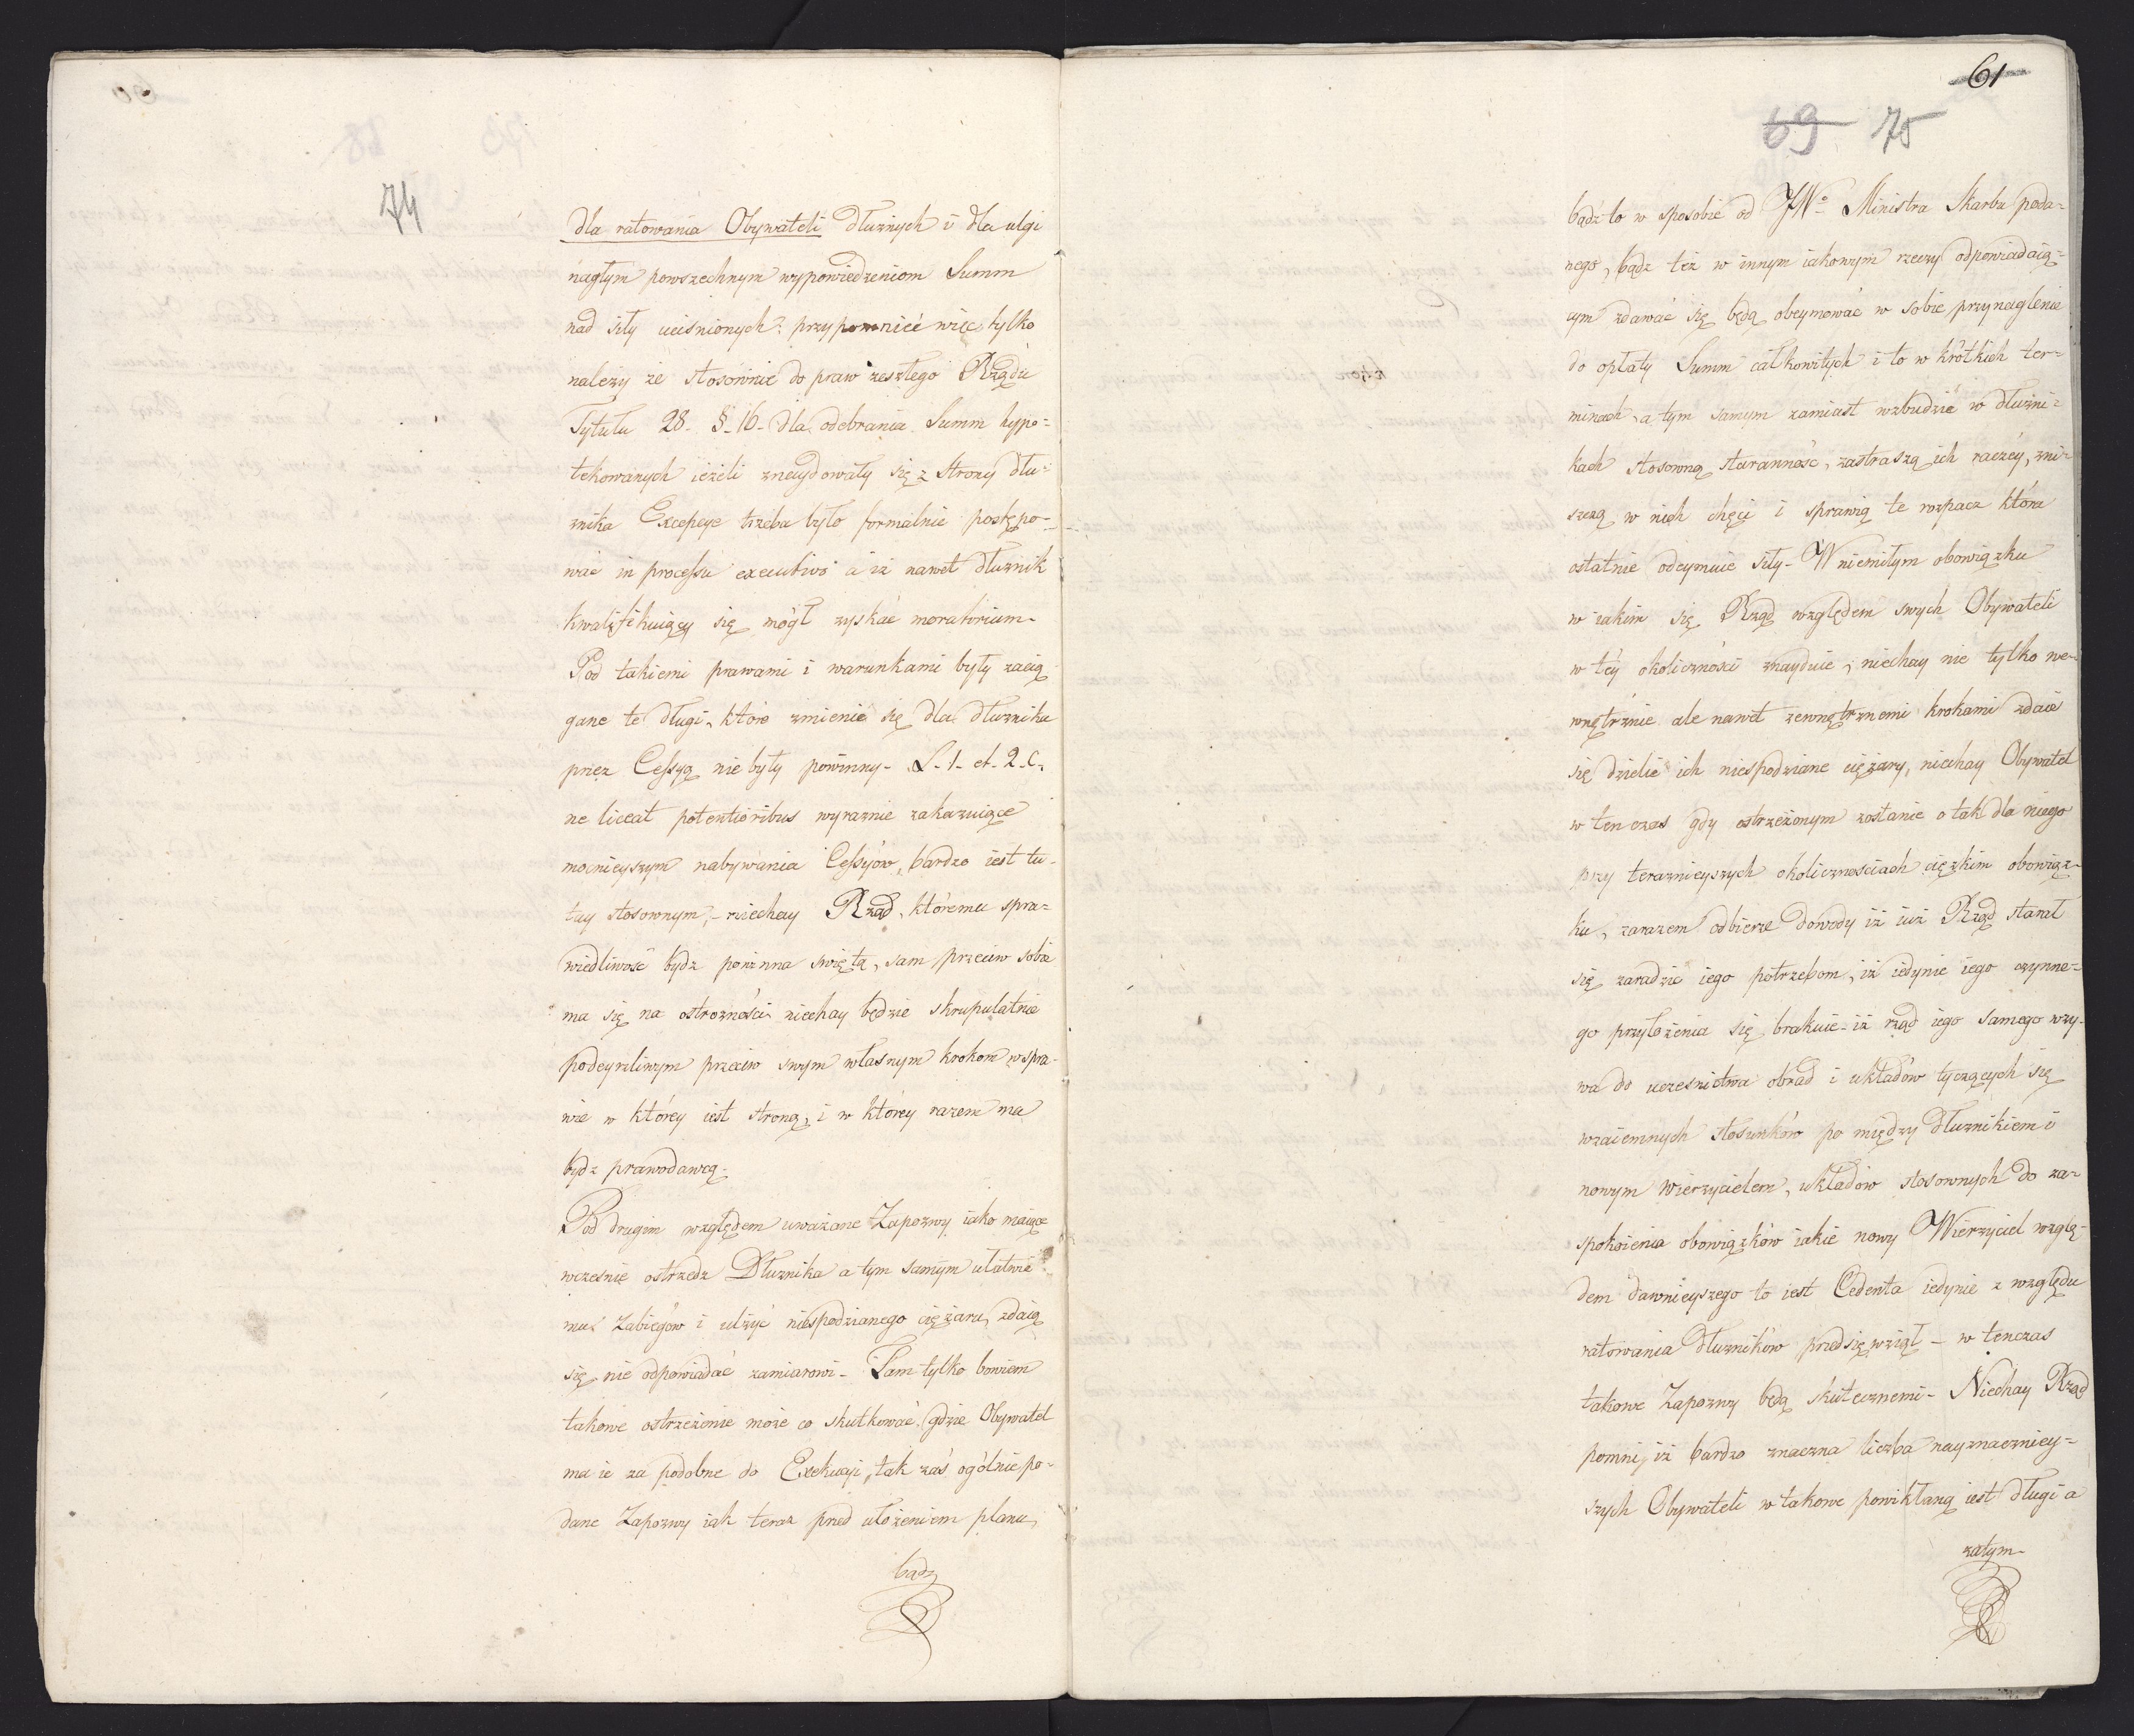 74
dla ratowania Obywateli dłużnych i dla ulgi
nagłym powszechnym wypowiedzeniom Summ
nad siły uciśnionych: przypomnieć więc tylko
należy że stosownie do praw zeszłego Rządu
Tytułu 28. §. 16. dla odebrania Summ hypo=
tekowanych ieżeli znaydowały się z strony dłu=
żnika Excepcye trzeba było formalnie postępo=
wać in processu executivo a iż nawet dłużnik
kwalifikuiący się mógł zyskać moratorium.
Pod takiemi prawami i warunkami były zacią
gane te długi, które zmienić się dla dłużnika
przez Cessyą nie były powinny. L. 1. et. 2. C.
ne liceat potentioribus wyraznie zakazuiące
mocnieyszym nabywania Cessyów, bardzo iest tu-
tay stosownym, niechay Rząd, któremu spra=
wiedliwość bydz powinna świętą, sam przeciw sobie
ma się na ostrożności niechay będzie skrupulatnie
podeyrzliwym przeciw swym własnym krokom w spra-
wie w którey iest stroną, i w którey razem ma
bydz prawodawcą.
Pod drugim względem uważane Zapozwy iako maiące
wcześnie ostrzedz Dłużnika a tym samym ułatwić
mu zabiegów i ulżyć niespodzianego ciężaru, zdaią
się nie odpowiadać zamiarowi. Tam tylko bowiem
takowe ostrzeżenie może co skutkować gdzie Obywatel
ma ie za podobne do Exekucyi, tak zaś ogólnie po=
dane Zapozwy iak teraz przed ułożeniem planu,
bądź
61
69 75
bądź to w sposobie od JWo Ministra Skarbu poda=
nego, bądz też w innym iakowym rzeczy odpowiadaią=
cym zdawać się będą obeymować w sobie przynaglenie
do opłaty Summ całkowitych i to w krótkich ter=
minach, a tym samym zamiast wzbudzić w dłużni=
kach stosowną staranność, zastraszą ich raczéy, zni=
szczą w nich chęci i sprawią te rozpacz która
ostatnie odeymuie siły. W niemiłym obowiązku
w iakim się Rząd względem swych Obywateli
w téy okoliczności znayduie, niechay nie tylko we=
wnętrznie ale nawet zewnętrznemi krokami zdaie
się dzielić ich niespodziane ciężary, niechay Obywatel
w ten czas gdy ostrzeżonym zostanie o tak dla niego
przy teraznieyszych okolicznościach ciężkim obowiąz=
ku, zarazem odbierze dowody iż iuż Rząd starał
się zaradzić iego potrzebom, iż iedynie iego czynne=
go przyłożenia się brakuie iż rząd iego samego wzy-
wa do uczesnictwa obrad i układów tyczących się
wzaiemnych stosunków po między Dłużnikiem i
nowym Wierzycielem, układów stosownych do za=
spokoienia obowiązków iakie nowy Wierzyciel wzglę-
dem dawnieyszego to iest Cedenta iedynie z względu
ratowania Dłużników przedsięwziął – w tenczas
takowe Zapozwy będą skutecznemi. Niechay Rząd
pomni, iż bardzo znaczna liczba nayznaczniey=
szych Obywateli w takowe powikłaną iest długi a
zatym.